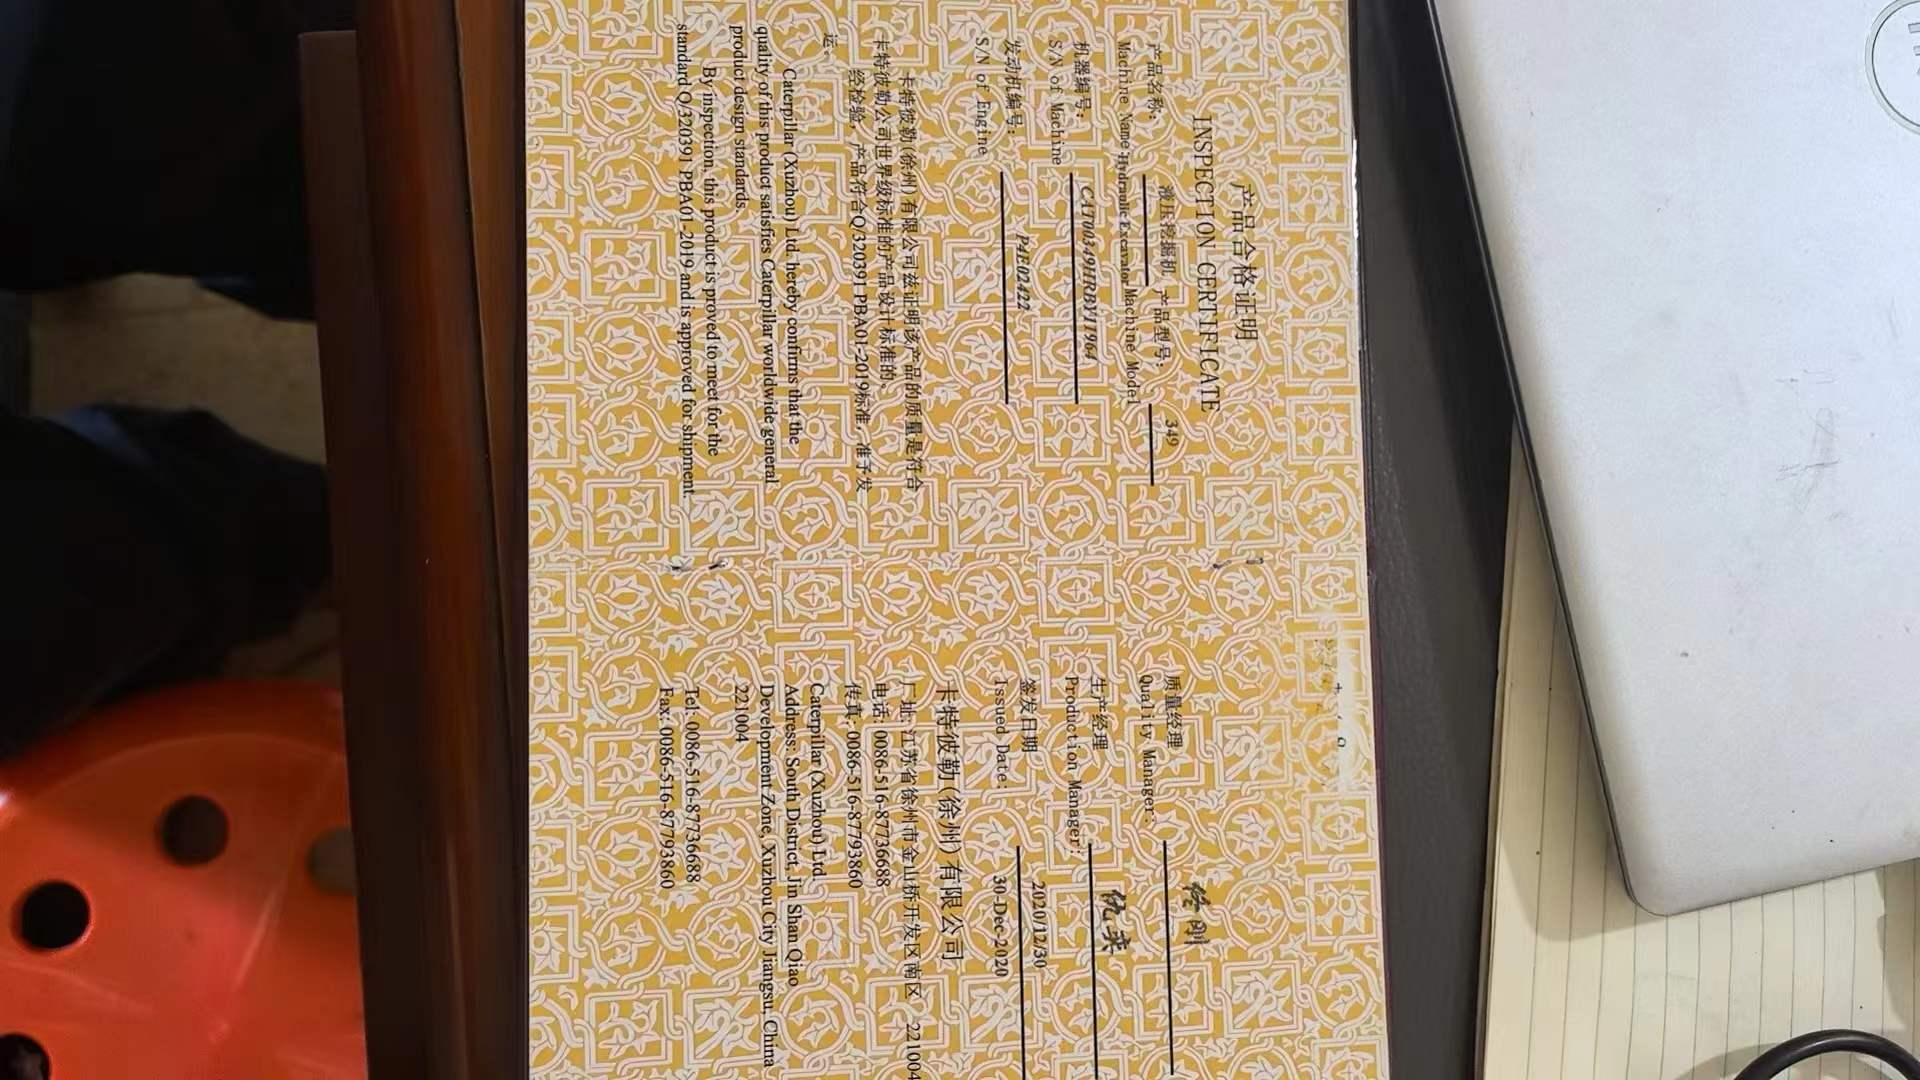 产品合格证明
INSPECTION CERTIFICATE
产品名称: 液压挖掘机 产品型号: 349
Machine Name Hydraulic Excavator Machine Model
机器编号: CAT00349HRBYJ1964
S/N of Machine
发动机编号: P4E02422
S/N of Engine
卡特彼勒(徐州)有限公司兹证明该产品的质量是符合
卡特彼勒公司世界级标准的产品设计标准的。
经检验，产品符合Q/320391 PBA01-2019标准，准予发
运。
Caterpillar (Xuzhou) Ltd. hereby confirms that the
quality of this product satisfies Caterpillar worldwide general
product design standards.
By inspection, this product is proved to meet for the
standard Q/320391 PBA01-2019 and is approved for shipment.
质量经理
Quality Manager:
生产经理
Production Manager:
签发日期 2020/12/30
Issued Date: 30-Dec-2020
卡特彼勒(徐州)有限公司
厂址: 江苏省徐州市金山桥开发区南区 221004
电话: 0086-516-87736688
传真: 0086-516-87793860
Caterpillar (Xuzhou) Ltd.
Address: South District, Jin Shan Qiao
Development Zone, Xuzhou City Jiangsu, China
221004
Tel: 0086-516-87736688
Fax: 0086-516-87793860